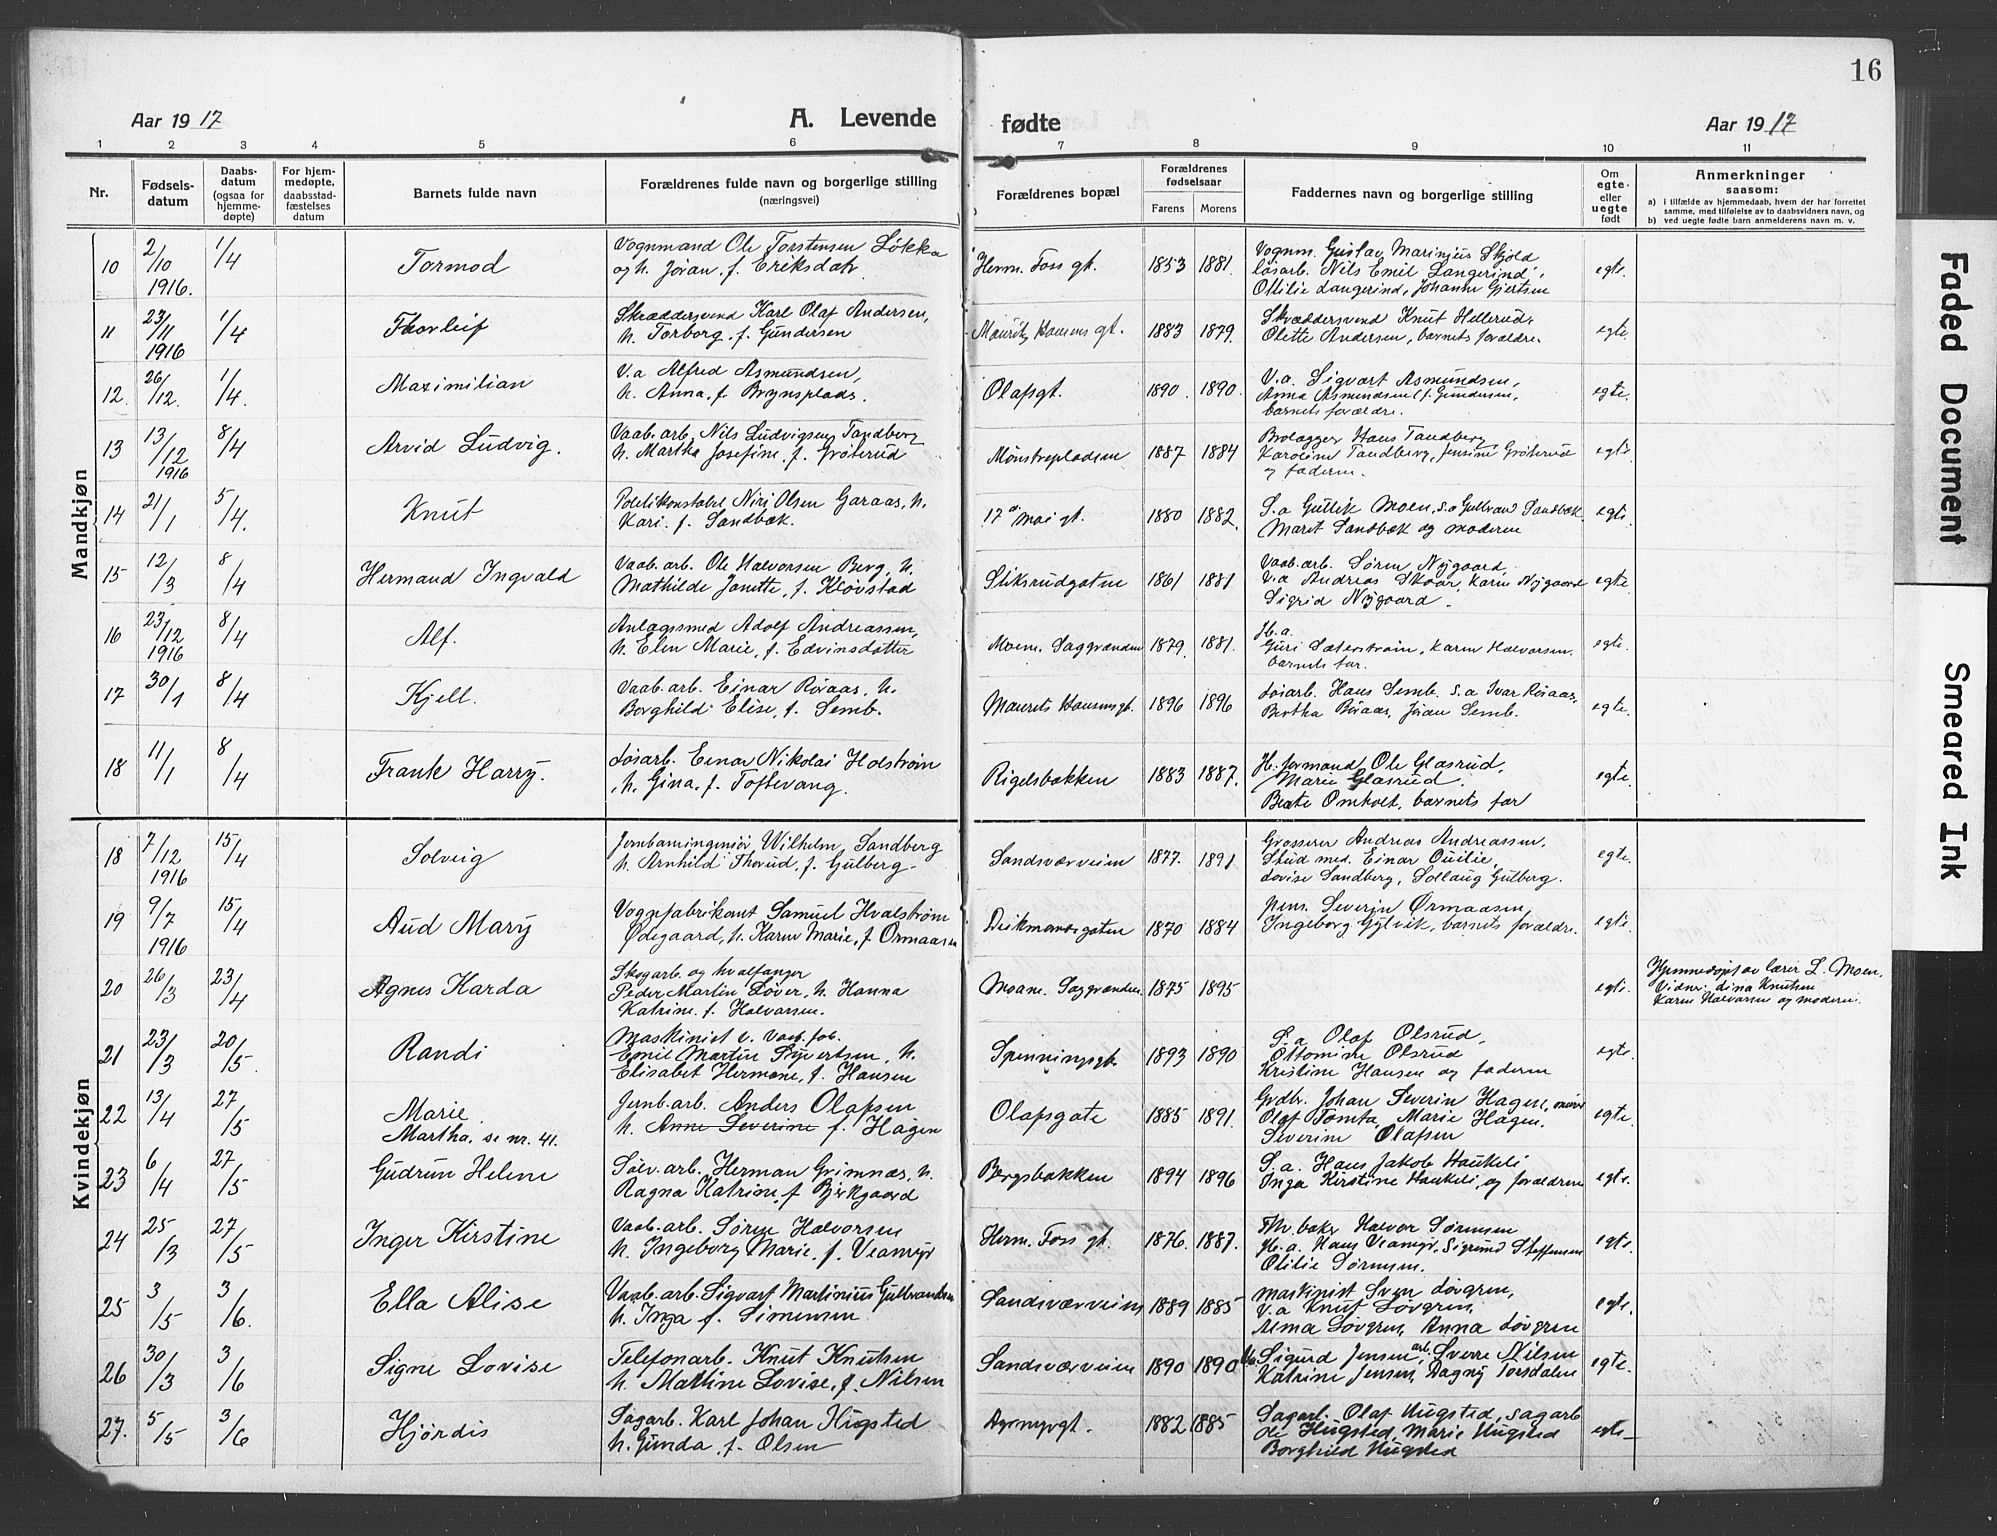 16
Aar 1917
A. Levende
fødte
Aar 1917
1 2 3 4 5 6 7 8 9 10 11
Nr.
Fødsels-
datum
Daabs-
datum
(ogsaa for
hjemme-
døpte)
For hjem-
medøpte,
daabsstad-
fæstelses
datum
Barnets fulde navn
Forældrenes fulde navn og borgerlige stilling
(næringsvei)
Forældrenes bopæl
Forældrenes
fødselsaar
Farens Morens
Faddernes navn og borgerlige stilling
Om
egte-
eller
uegte
født
Anmerkninger
saasom:
a) i tilfælde av hjemmedaab, hvem der har forrettet
samme, med tilføielse av to daabsvidners navn, og
b) ved uegte fødte barn anmelderens navn m. v.
Mandkjøn
10 2/10 1916. 1/4 Tormod
Vognmand Ole Torstensen Løkka
og h. Jøran f. Eriksdatr.
Herm. Foss gt. 1853 1881.
Vognm. Gustav Marinius Skjold
løsarb. Nils Emil Langerind,
Ottilie Langerind, Johanne Gjertsen
egte.
11 23/11 1916 1/4 Thorleif
Skræddersvend Karl Olaf Andersen,
h. Torborg f. Gundersen
Mauritz Hansens gt. 1883 1879.
Skræddersvend Knut Hellerud,
Olette Andersen, barnets forældre.
egte.
12. 26/12. 1/4. Maximilian
V.a. Alfred Asmundsen,
h. Anna f. Brynsplads.
Olafsgt. 1890. 1890.
V.a. Sigvart Asmundsen,
Anna Asmundsen f. Gundersen,
barnets forældre.
egte.
13 13/12 1916 8/4 Arvid Ludvig.
Vaab.arb. Nils Ludvigsen Tandberg
h. Martha Josefine, f. Grøterud
Mønstrepladsen 1887 1884
Brolægger Hans Tandberg,
Karoline Tandberg, Jensine Grøterud
og faderen.
egte.
14 21/1 5/4. Knut
Politikonstabel Niri Olsen Garaas, h.
Kari f. Sandbæk.
17 de mai gt. 1880 1882.
S.a Gullik Moen, s.a Gulbrand Sandbæk
Marit Sandbæk og moderen
egte.
15 12/3 8/4 Hermand Ingvald
Vaab.arb. Ole Halvorsen Berg, h.
Mathilde Janette, f. Kløvstad
Sliksrudgaten 1861 1881
Vaab.arb. Søren Nygaard,
V.a Andreas Skaar, Karen Nygaard
Sigrid Nygaard.
egte.
16 23/12 1916 8/4 Alf.
Anlægsmed Adolf Andreassen,
h. Elen Marie, f. Edvinsdatter
Moene. Saggrænden 1879. 1881.
H.a.
Guri Sæterstrøm, Karen Halvorsen.
barnets far.
egte.
17 30/1 8/4 Kjell.
Vaab.arb. Einar Røraas, h.
Borghild Elise, f. Semb.
Maurits Hansensgt. 1896 1896
Løsarb. Hans Semb. s.a Ivar Røraas,
Bertha Røraas, Jøran Semb.
egte.
18 11/1 8/4 Frank Harry.
Løsarb. Einar Nikolai Holstrøm
h. Gina, f. Toftevang.
Rigelsbakken 1883 1887.
H. formand Ole Glasrud,
Marie Glasrud.
Beate Omholt, barnets far
egte.
Kvindekjøn
18 7/12 1916 15/4 Solveig
Jernbaneingeniør Wilhelm Sandberg
h. Arnhild Thorud, f. Gulberg.
Sandsværveien 1877. 1891.
Grosserer Andreas Andreassen.
Stud med. Einar Ouilie,
Lovise Sandberg, Sollaug Gulberg.
egte.
19 9/7 1916 15/4 Aud Mary
Vognfabrikant Samuel Hvalstrøm
Ødegaard, h. Karen Marie, f. Ormaasen
Deikmansgaten 1870 1884
pens. Severin Ormaasen,
Ingeborg Gylvik, barnets forældre.
egte.
20 26/3 23/4 Agnes Harda
Skogarb. og hvalfanger
Peder Martin Løver, h. Hanna
Katrine f. Halvorsen.
Moane. Saggrænden. 1875 1895
egte.
Hjemmedøpt av lærer L. Moen.
Vidner: Lina Knutsen
Karen Halvorsen og moderen.
21 23/3 20/5. Randi
Maskinist v. Vaab.fab.
Emil Martin Sivertsen, h.
Elisabet Hermane, f. Hansen
Spinningsgt. 1893 1890
S.a Olaf Olsrud,
Ottomine Olsrud
Kristine Hansen og faderen
egte.
22 13/4 27/5 Marie
Martha, se nr. 41.
Jernb.arb. Anders Olafsen
h. Anne Severine f. Hagen
Olafsgate 1885 1891.
Gvdbr. Johan Severin Hagen,
Olaf Tomta, Marie Hagen.
Severine Olafsen
egte.
23 6/4 27/5 Gudrun Helene
Sølv.arb. Herman Grimnæs, h.
Ragna Katrine f. Bjerkgaard
Bergsbakken 1894 1896
S.a. Hans Jakob Haukeli
Inga Kirstine Haukeli, og forældrene
egte.
24 25/3 27/5 Inger Kirstine
Vaab.arb. Søren Halvorsen
h. Ingeborg Marie, f. Veamyr
Herm. Foss gt. 1876. 1887.
Thv.baker Halvor Sørensen
H.a. Hans Veamyr, Sigrund Steffensen
Otilie Sørensen.
egte.
25 3/5 3/6. Ella Alise
Vaab.arb. Sigvart Martinius Gulbrandsen
h. Inga f. Simensen
Sandsværveien 1889 1885
Maskinist Sven Løvgren,
V.a Knut Løvgren,
Alma Løvgren, Anna Løvgren
egte.
26 30/3 3/6 Signe Lovise
Telefonarb. Knut Knutsen
h. Martine Lovise, f. Nilsen
Sandsværveien 1890 1890
Sigurd Jensen, arb. Sverre Nilsen
Katrine Jensen, Dagny Torsdalen
egte.
27. 5/5 3/6 Hjørdis
Sagarb. Karl Johan Hugsted
h. Gunda f. Olsen
Myntgt. 1882 1885
Sagarb. Olaf Hugsted, sagarb
Ole Hugsted, Marie Hugsted
Borghild Hugsted
egte
Faded Document
Smeared Ink